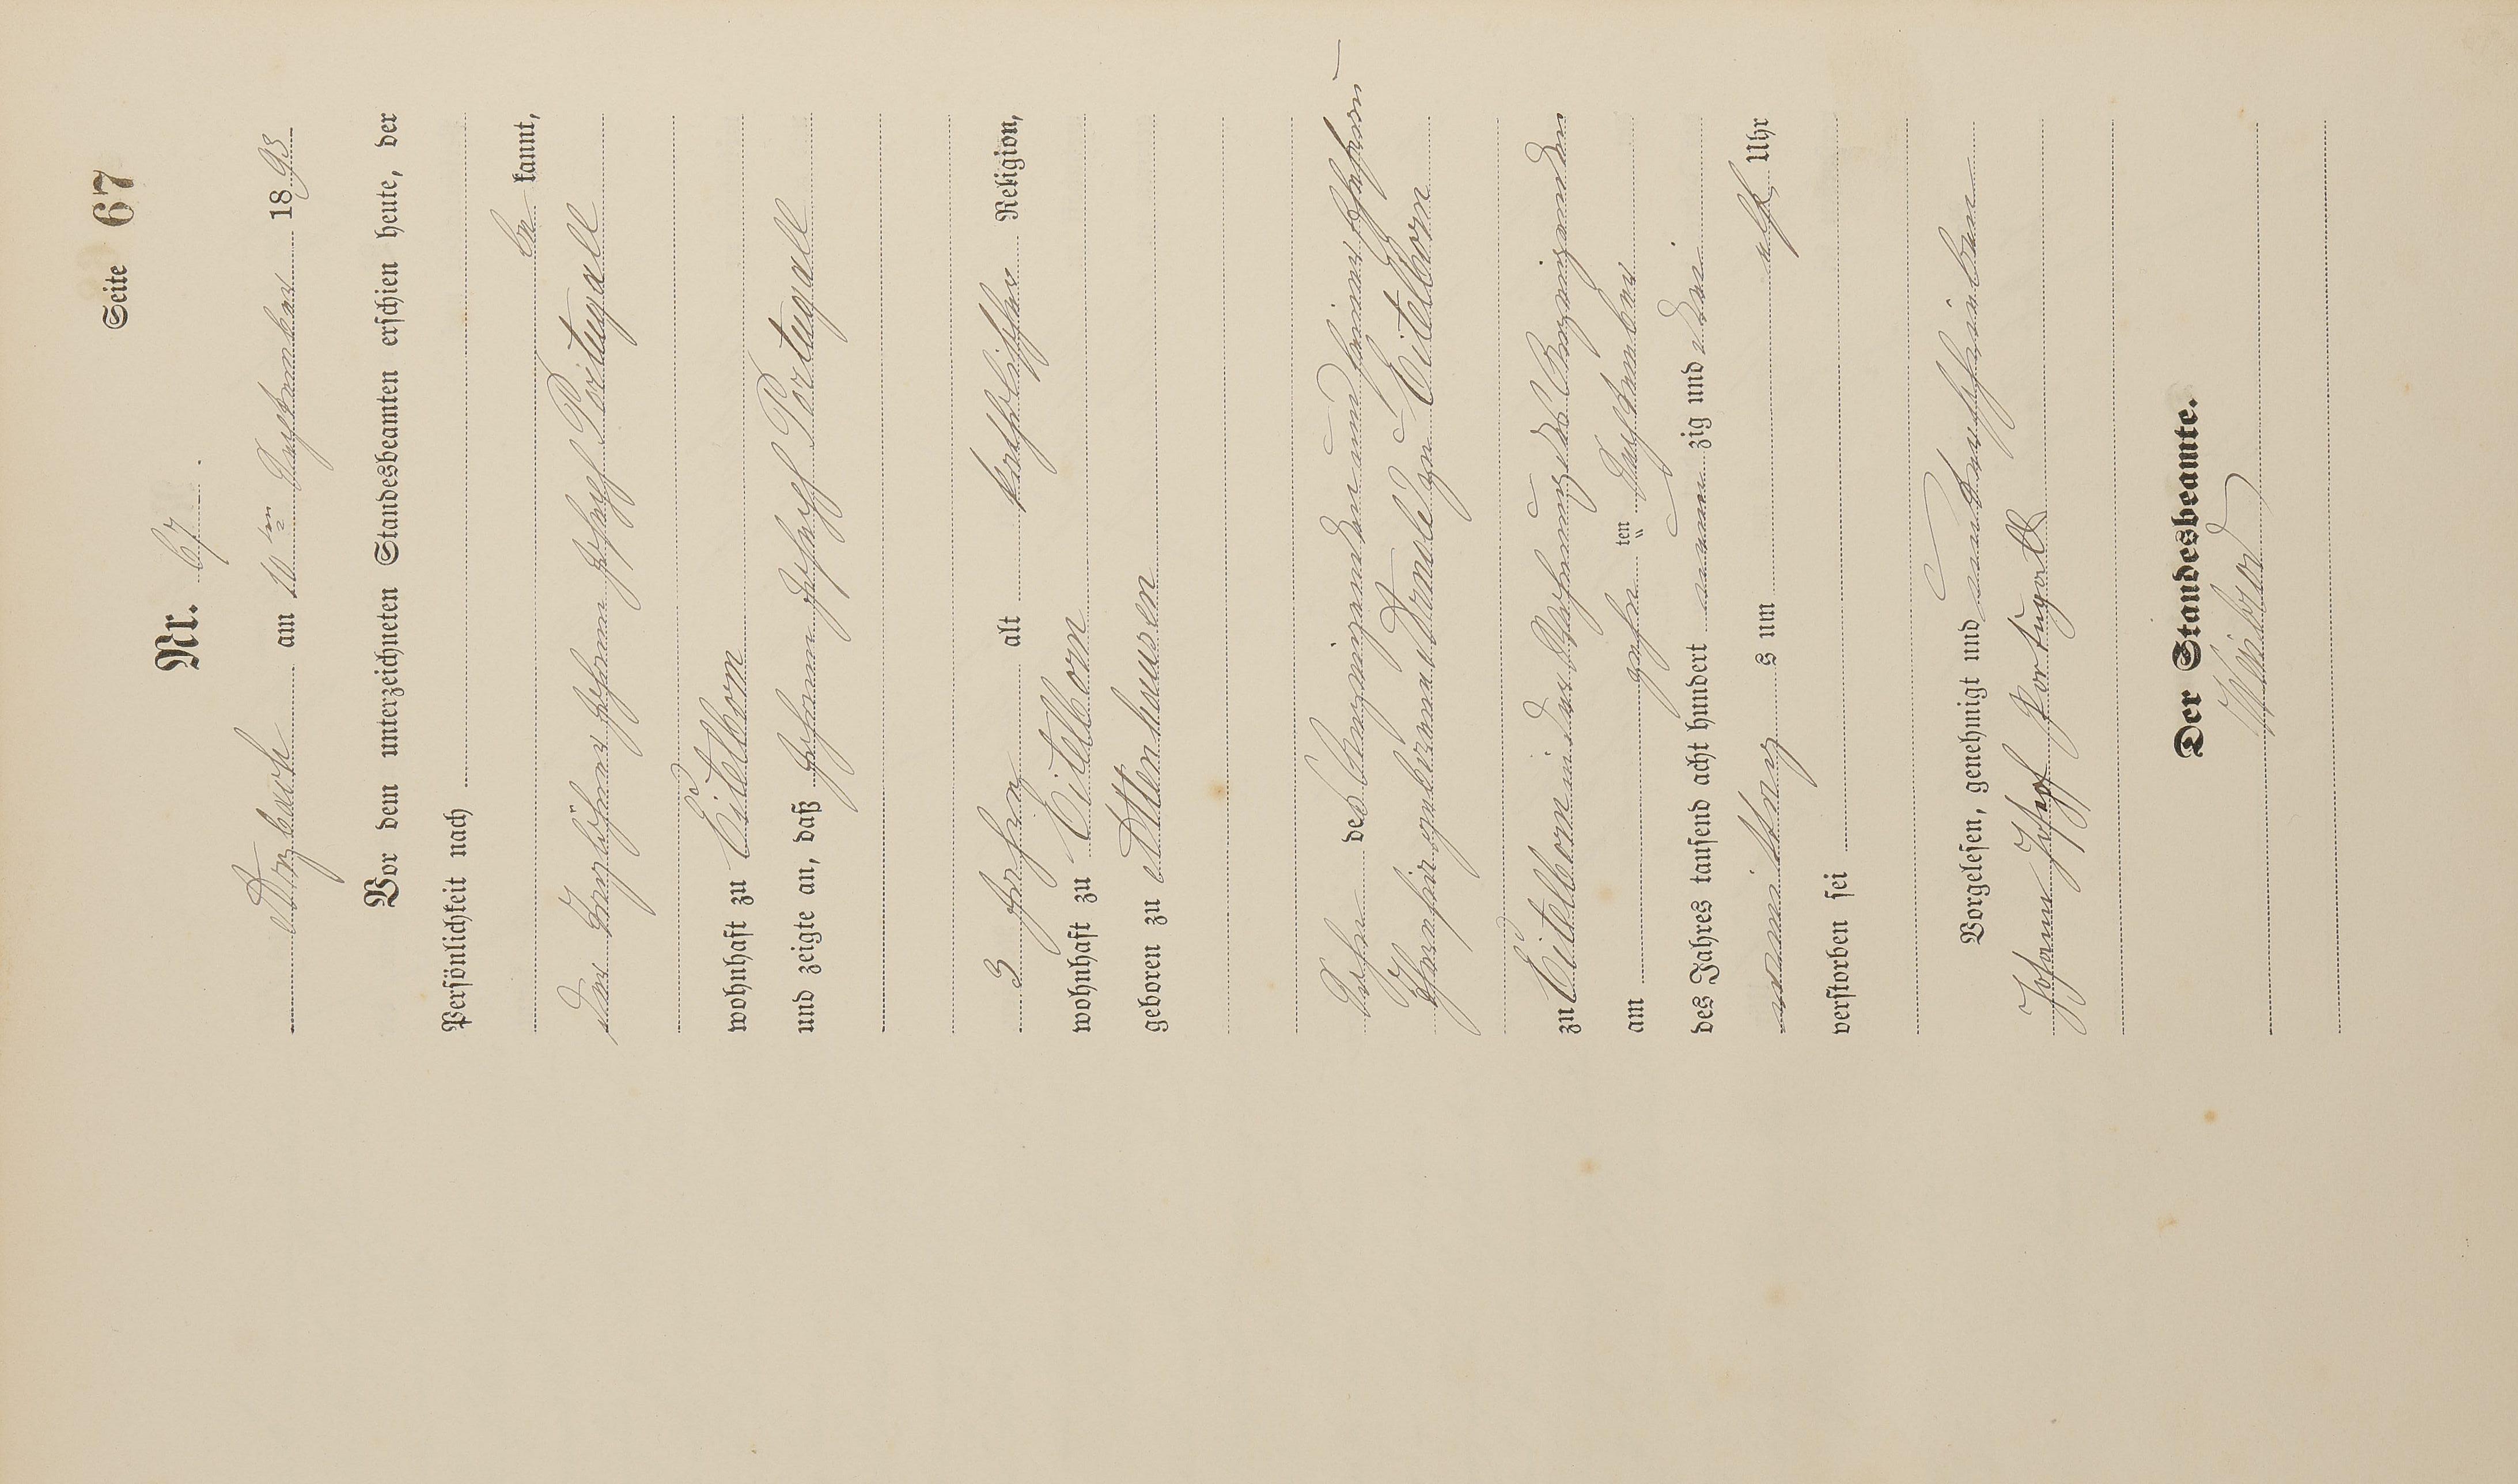 Seite 67
Nr. 67.
Arzbach am 10ten September 1893
Vor dem unterzeichneten Standesbeamten erschien heute, der
Persönlichkeit nach
be kannt,
der Taglöhner Johann Joseph Portugall
wohnhaft zu Eitelborn
und zeigte an, daß Johann Joseph Portugall
3 Jahre alt katholischer Religion,
wohnhaft zu Eitelborn
geboren zu Attenhausen
Sohn des Anzeigenden und seiner Ehefrau
geborene zu Eitelborn
zu Eitelborn in der Wohnung des Anzeigenden
am zehn ten September
des Jahres tausend acht hundert neun zig und drei
vormittags um elf Uhr
verstorben sei
Vorgelesen, genehmigt und unterschrieben
Johann Josef Portugall
Der Standesbeamte.